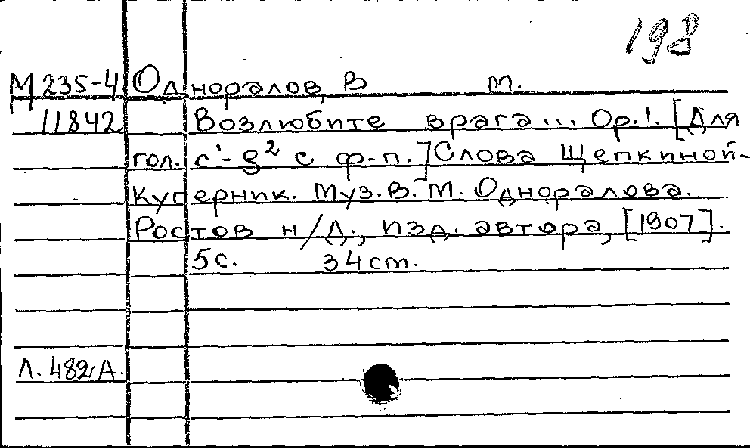 198
М 235-4 Одноралов, В м.
11842 Возлюбите врага... Ор.1. [Для
гол. c¹-g² с ф-п.] Слова Щепкиной-
Куперник. Муз. В. М. Одноралова.
Ростов н/Д., изд. автора, [1907].
5с. 34cm.
Л. 482.А.